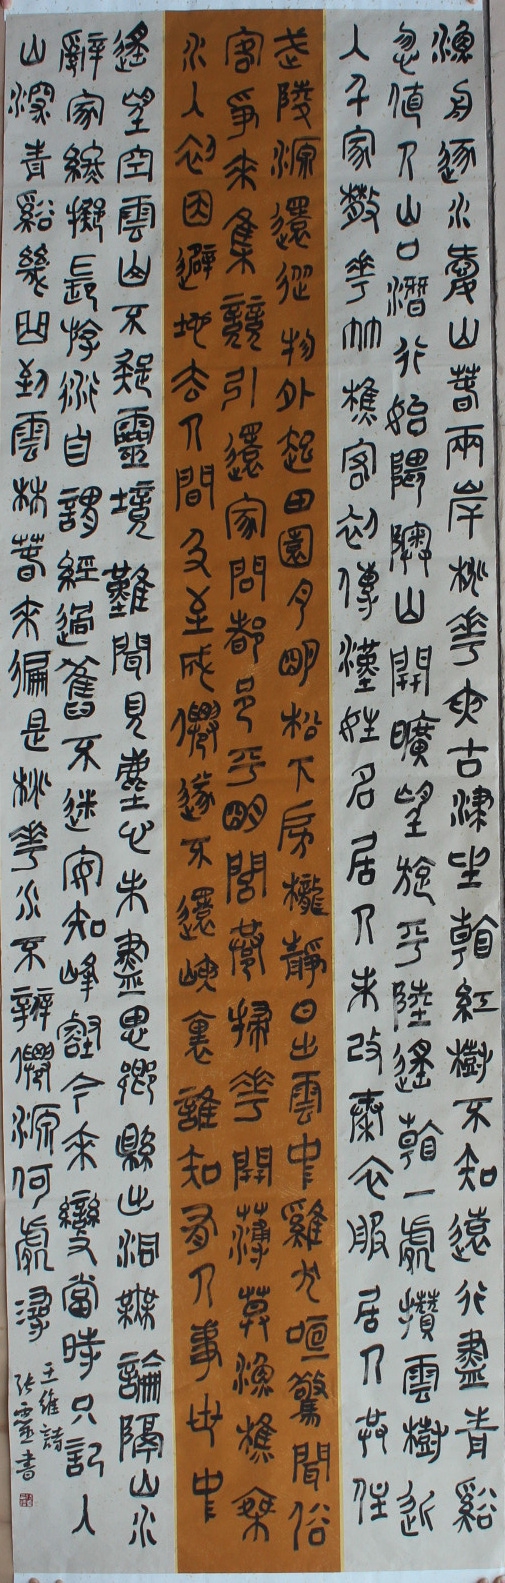 漁舟逐水愛山春兩岸桃花夾古津坐看紅樹不知遠行盡青谿
忽值人山口潛行始隈隩山開曠望旋平陸遙看一處攢雲樹近
入千家散花竹樵客初傳漢姓名居人未改秦衣服居人共住
武陵源還從物外起田園月明松下房櫳靜日出雲中雞犬喧驚聞俗
客爭來集競引還家問都邑平明閭巷掃花開薄暮漁樵乘
水入初因避地去人間及至成僊遂不還峽裏誰知有人事世中
遙望空雲山不疑靈境難聞見塵心未盡思鄉縣出洞無論隔山水
辭家終擬長游衍自謂經過舊不迷安知峰壑今來變當時只記入
山深青谿幾曲到雲林春來徧是桃花水不辨僊源何處尋
王維詩
張靈書